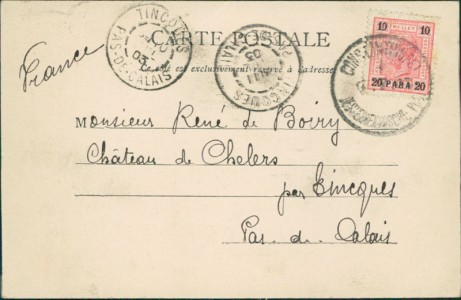 CARTE POSTALE
Côté exclusivement réservé à l'adresse
France
TINCQUES
PAS-DE-CALAIS
03
TINCQUES
PAS DE CALAIS
03
10 HELLER 10
20 PARA 20
CONSTANTINOPEL
Monsieur René de Boiry
Château de Chelers
par Tincques
Pas-de-Calais